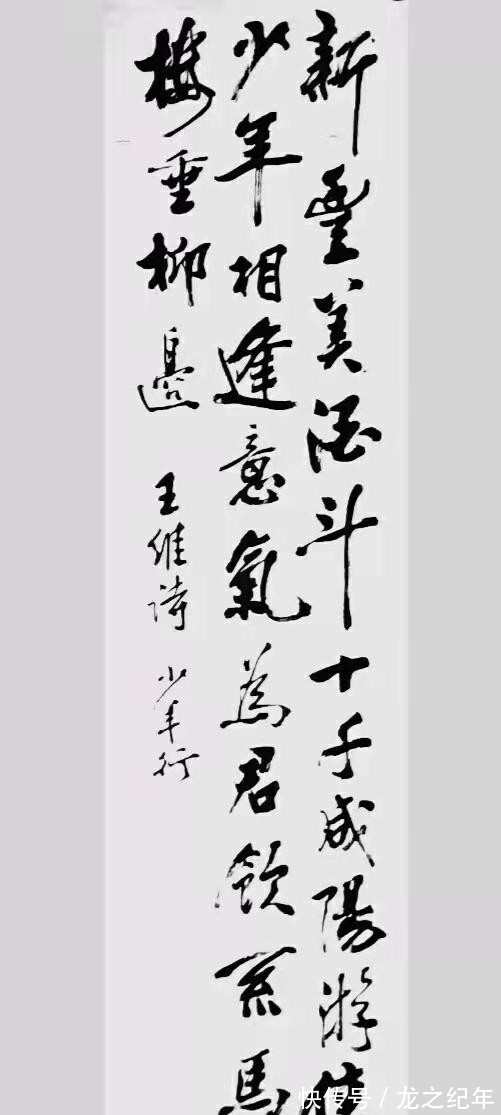 新豐美酒斗十千咸陽游
少年相逢意氣為君飲系馬
樓垂柳邊
王維詩 少年行
快传号/龙之纪年